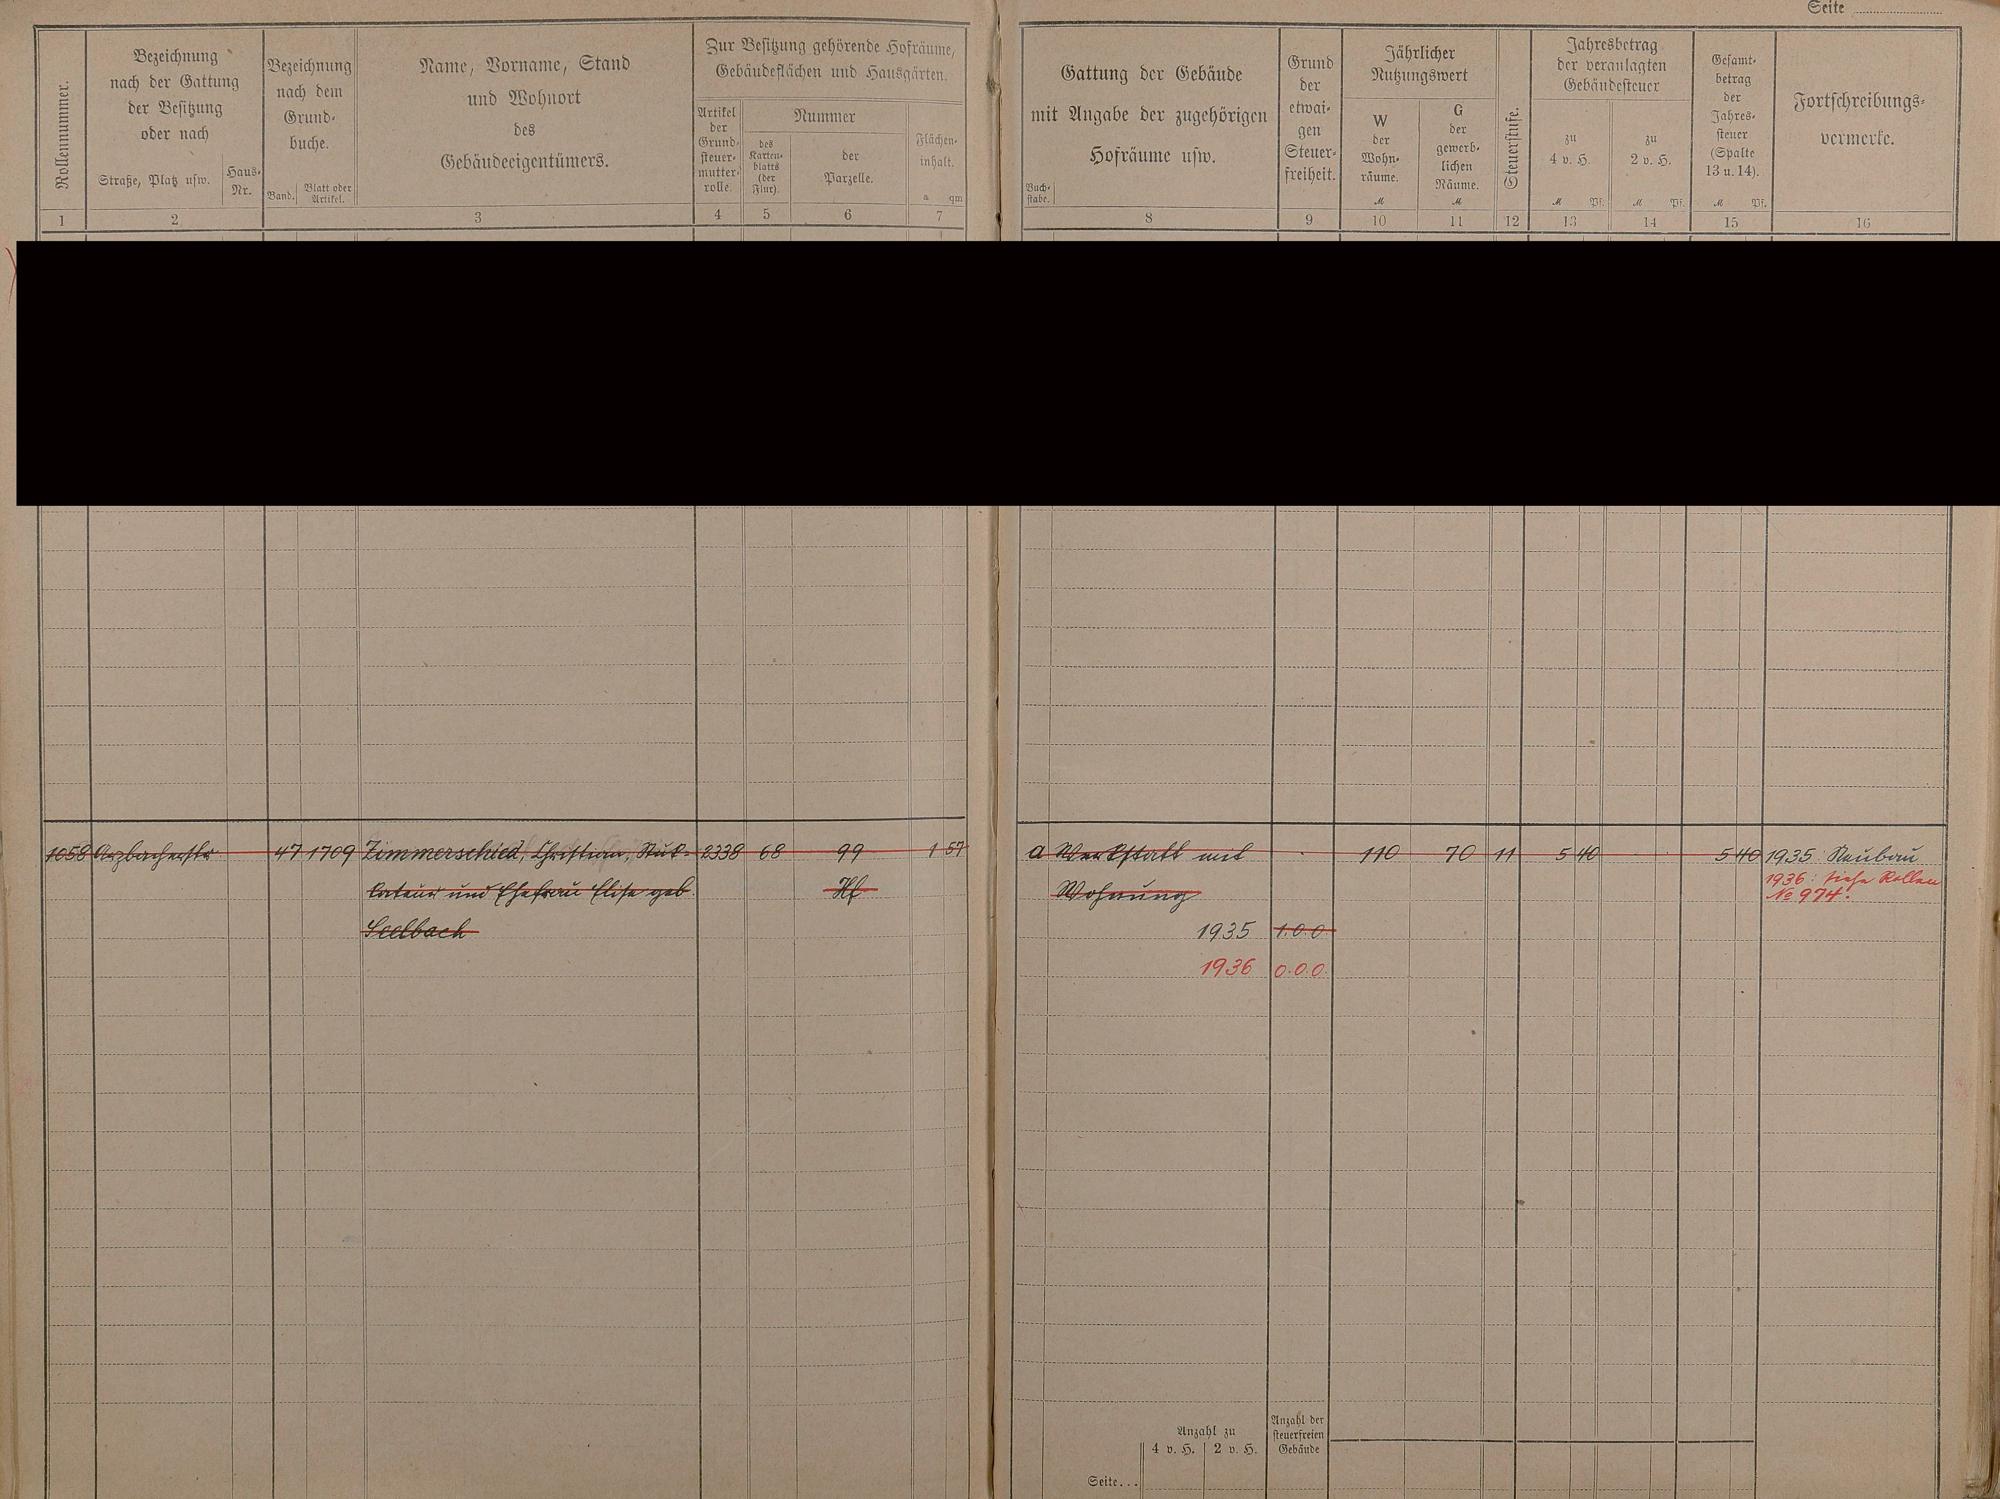 Seite
Rollennummer.
Bezeichnung
nach der Gattung
der Besitzung
oder nach
Straße, Platz usw.
Haus-
Nr.
Bezeichnung
nach dem
Grund-
buche.
Band.
Blatt oder
Artikel.
Name, Vorname, Stand
und Wohnort
des
Gebäudeeigentümers.
Zur Besitzung gehörende Hofräume,
Gebäudeflächen und Hausgärten.
Artikel
der
Grund-
steuer-
mutter-
rolle.
Nummer
des
Karten-
blatts
(der
Flur).
der
Parzelle.
Flächen-
inhalt.
a qm
Buch-
stabe.
Gattung der Gebäude
mit Angabe der zugehörigen
Hofräume usw.
Grund
der
etwai-
gen
Steuer-
freiheit.
Jährlicher
Nutzungswert
W
der
Wohn-
räume.
M
G
der
gewerb-
lichen
Räume.
M
Steuerstufe.
Jahresbetrag
der veranlagten
Gebäudesteuer
zu
4 v. H.
M Pf.
zu
2 v. H.
M Pf.
Gesamt-
betrag
der
Jahres-
steuer
(Spalte
13 u. 14).
M Pf.
Fortschreibungs-
vermerke.
1 2 3 4 5 6 7 8 9 10 11 12 13 14 15 16
1058 Arzbacherstr 47 1709 Zimmerschied, Christian, Stuk- 2338 68 99 1 57 a Werkstatt mit 110 70 11 5 40 5 40 1935 Neubau
kateur und Ehefrau Elise geb. Hf Wohnung 1936: siehe Rollen
No 974.
Seelbach 1935 1.0.0.
1936 0.0.0.
Anzahl zu
4 v. H. 2 v. H.
Anzahl der
steuerfreien
Gebäude
Seite...